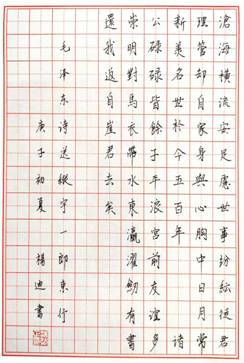 滄海橫流安足慮世事紛紜從君
理管却自家身與心胸中日月常
新美名世於今五百年諸
公碌碌皆餘子平浪宮前友誼多
崇明對馬衣帶水東瀛濯劍有書
還我返自崖君去矣
毛泽东詩送縱宇一郎東行
庚子初夏楊迪書